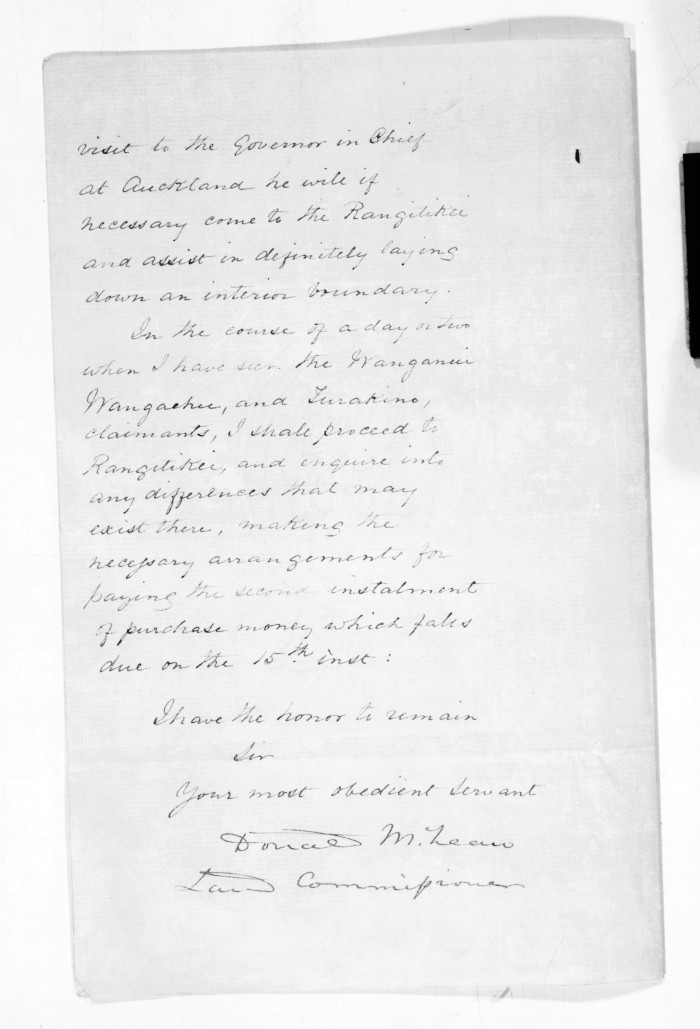 visit to the Governor in Chief
at Auckland he will if
necessary come to the Rangitikei
and assist in definitely laying
down an interior boundary.
In the course of a day or two
when I have seen the Wanganui
Wangaehu, and Turakino,
claimants, I shall proceed to
Rangitikei, and enquire into
any differences that may
exist there, making the
necessary arrangements for
paying the second instalment
of purchase money which falls
due on the 15th inst:
I have the honor to remain
Sir
Your most obedient Servant
Donald McLean
Land Commissioner